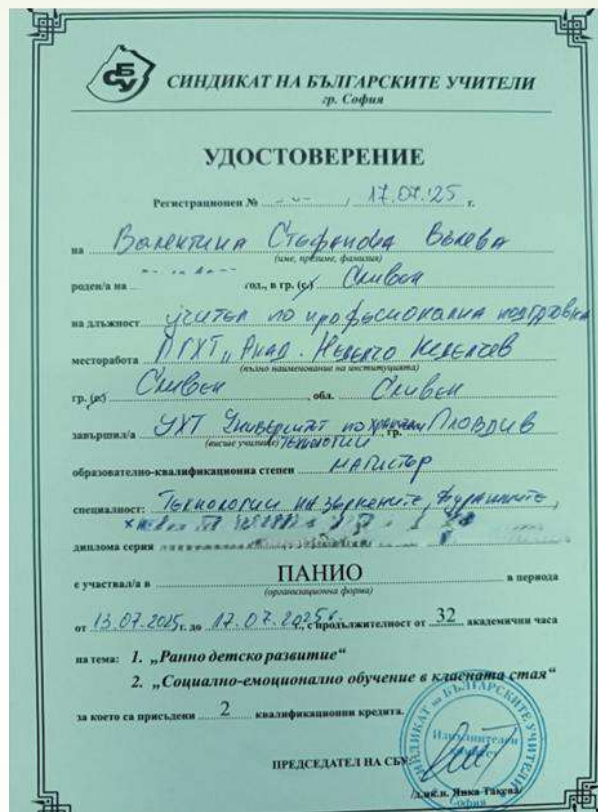 СБУ
СИНДИКАТ НА БЪЛГАРСКИТЕ УЧИТЕЛИ
гр. София
УДОСТОВЕРЕНИЕ
Регистрационен № / 17.07.25 г.
на Валентина Стефанова Вълева
(име, презиме, фамилия)
роден/а на год., в гр. (с.) Сливен
на длъжност учител по професионална подготовка
месторабота ПГХТ "Акад. Неделчо Неделчев
(пълно наименование на институцията)
гр. (с.) Сливен, обл. Сливен
завършил/а УХТ Университет по хранителни технологии, гр. Пловдив
(висше училище)
образователно-квалификационна степен магистър
специалност: Технологии на зърнените, фуражните,
диплома серия
е участвал/а в ПАНИО в периода
(организационна форма)
от 13.07.2025г. до 17.07.2025г., с продължителност от 32 академични часа
на тема: 1. „Ранно детско развитие“
2. „Социално-емоционално обучение в класната стая“
за което са присъдени 2 квалификационни кредита.
ПРЕДСЕДАТЕЛ НА СБУ:
/д.ик.н. Янка Такева/
СИНДИКАТ НА БЪЛГАРСКИТЕ УЧИТЕЛИ
Изпълнителен
София